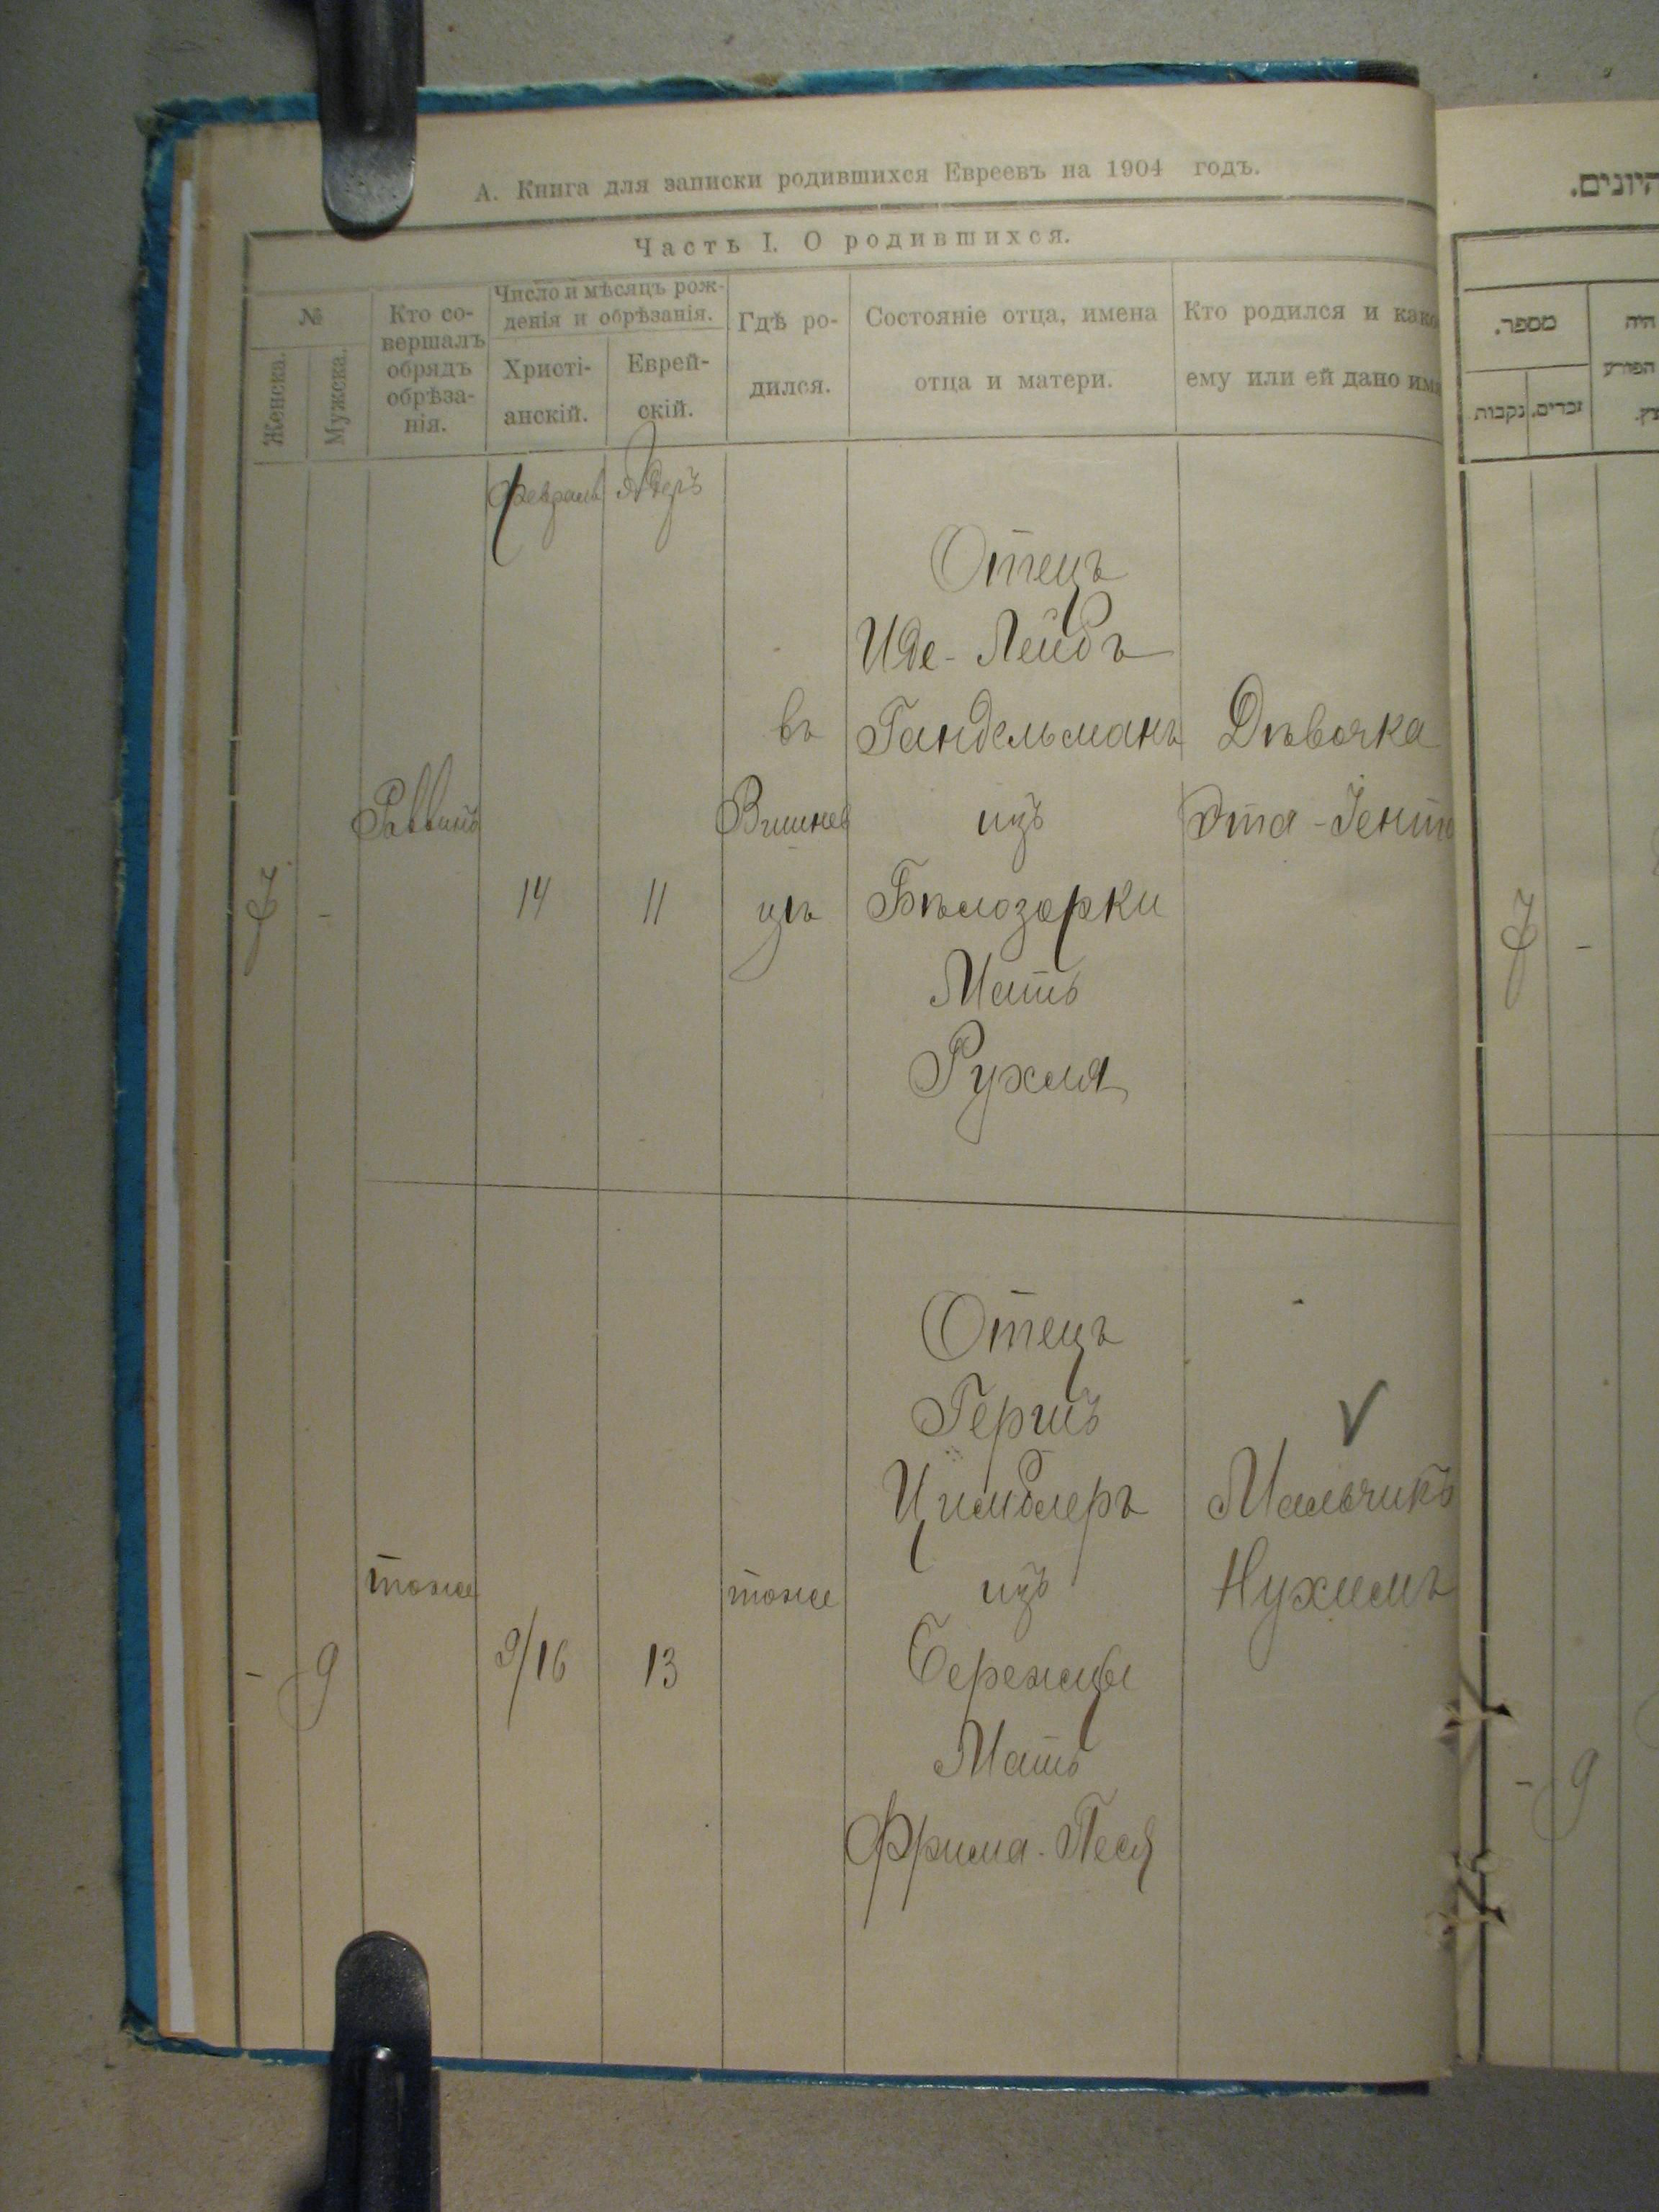 А. Книга для записки родившихся Евреевъ на 1904 годъ.
Часть I. О родившихся.
№
Женска.
Мужска.
Кто со-
вершалъ
обрядъ
обрѣза-
нія.
Число и мѣсяцъ рож-
денія и обрѣзанія.
Христі-
анскій.
Еврей-
скій.
Гдѣ ро-
дился.
Состояніе отца, имена
отца и матери.
Кто родился и како
ему или ей дано имя
Февраль
Адеръ
7
-
Раввинъ
14
11
въ
Вишнев
цѣ
Отецъ
Иде-Лейбъ
Гандельманъ
изъ
Бѣлозорки
Мать
Рухля
Дѣвочка
Эта-Іента
-
9
тоже
9/16
13
тоже
Отецъ
Гершъ
Цимблеръ
изъ
Бережцы
Мать
Фрима-Песя
Мальчикъ
Нухимъ
היונים.
מספר.
נקבות
זכרים.
היה
הפורע
7
-
-
9